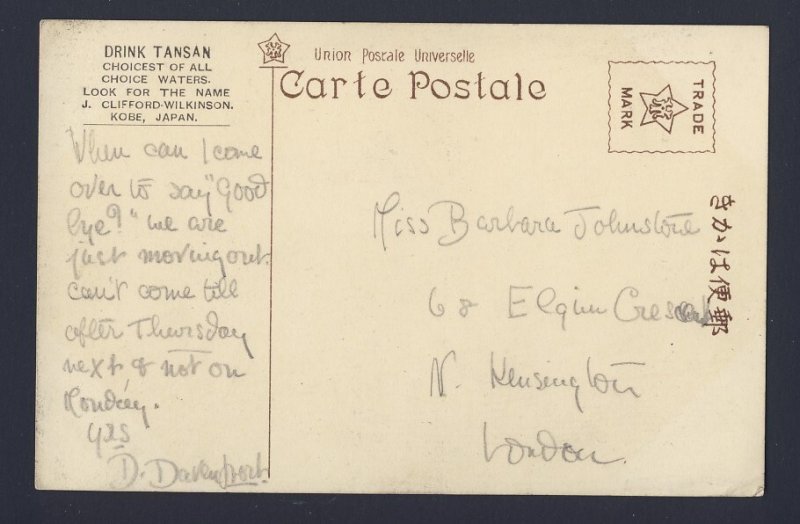 DRINK TANSAN
CHOICEST OF ALL
CHOICE WATERS.
LOOK FOR THE NAME
J. CLIFFORD-WILKINSON.
KOBE, JAPAN.
Union Postale Universelle
Carte Postale
TRADE
MARK
きかは便郵
When can I come
over to say "Good
bye?" we are
just moving out.
can't come till
after Thursday
next & not on
Monday.
yrs
D. Davenport
Miss Barbara Johnstone
68 Elgin Crescent
N. Kensington
London.